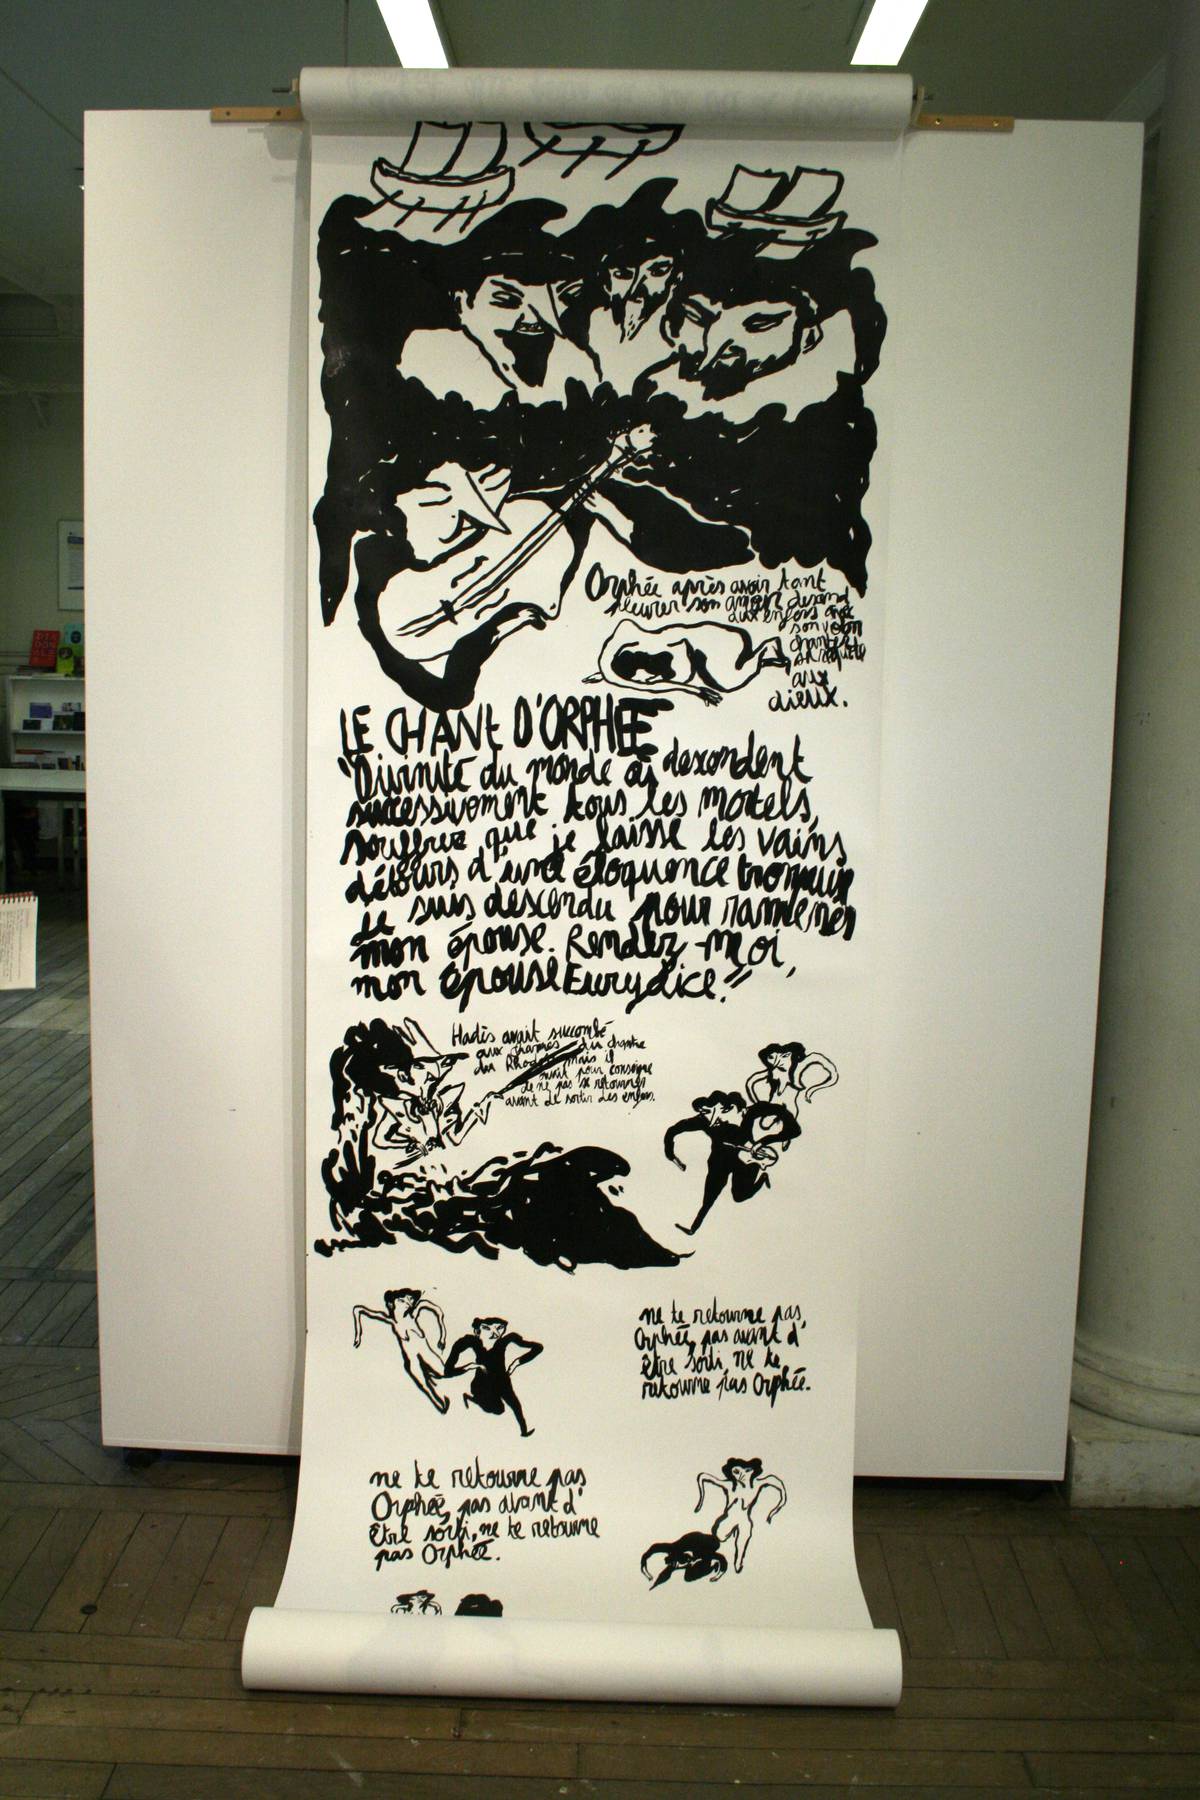 Orphée après avoir tant
pleurer son amour descend
aux enfers avec
son violon
chanter
sa requête
aux
dieux.
LE CHANT D'ORPHÉE
"Divinité du monde où descendent
successivement tous les mortels,
souffrez que je laisse les vains
détours d'une éloquence trompeuse
Je suis descendu pour ramener
mon épouse. Rendez-moi,
mon épouse Eurydice."
Hadès avait succombé
aux charmes du chantre
du Rhodope mais il
avait pour consigne
de ne pas se retourner
avant de sortir des enfers.
ne te retourne pas,
Orphée, pas avant d'
être sorti, ne te
retourne pas Orphée.
ne te retourne pas
Orphée, pas avant d'
être sorti, ne te retourne
pas Orphée.